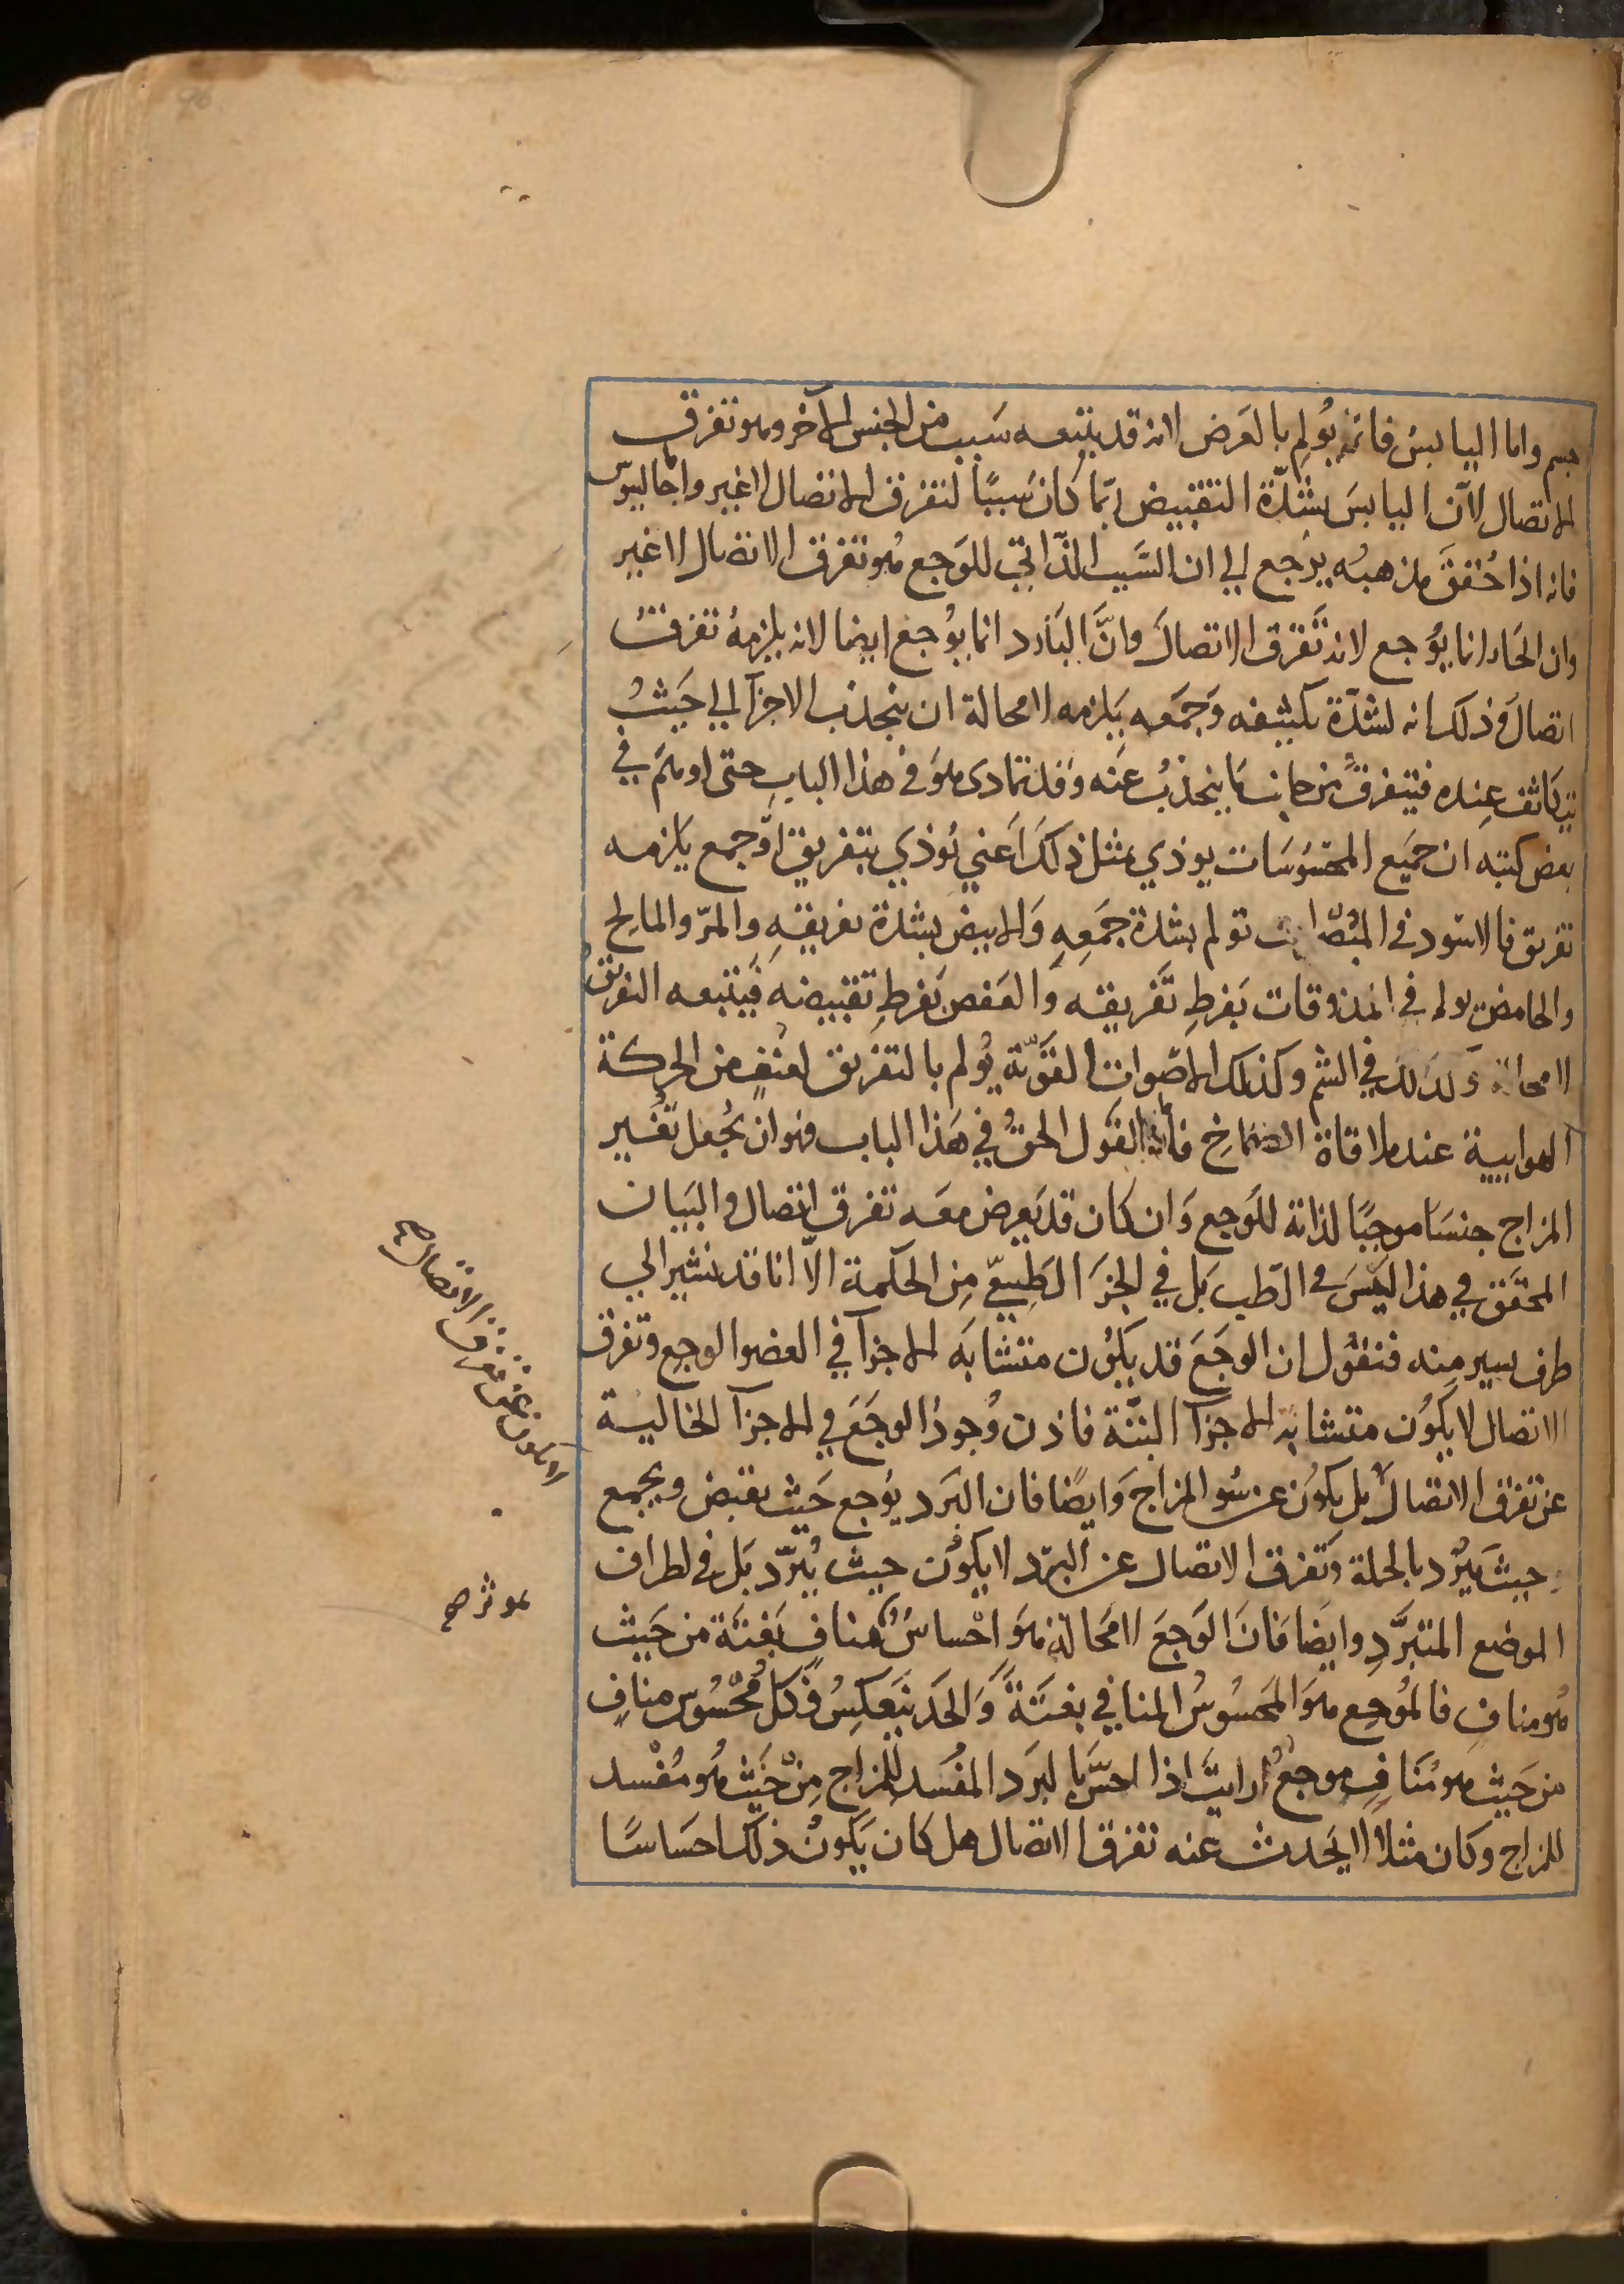 جسم واما اليابس فانه يُولِم بالعَرض لانه قد يتبعه سَبب من الجنس الآخر وهو تفرق
الاتصال لانّ اليابسَ بشدّة التقبيض ربّما كان سَببًا لتفرق الاتصال لاغير واما جالينوس
فانه اذا حُقق مذهبه يرجع الي ان السَّبب الذّاتي للوَجع هُو تفرق الاتصال لاغير
وان الحَار انما يوُجع لانه تَّفرق الاتصالَ وانَّ البَارد انما يوُجع ايضا لانه يلزمهُ تفرقُ
اتصالَ وذلك انه لشدّة تكثيفه وَجمَعه يَلزمه لامحالة ان ينجذب الاجزآ الي حَيثُ
يتكَاثف عِنده فيتفرقُ من جانب مَا ينجذبُ عَنه وَقد تمادى هوَ في هذا البابِ حتى اوهَمَ في
بعض كتبه ان جَميَع المحسُوسَات يوذي بمثل ذلكَ اَعني يُوذيَ بتفريق اوَجمع يَلزمه
تفريق فالاسَود في المبصَرات يولم بشدة جمَعِهِ وَالابيضُ بشدة تفريقهِ والمرّ والمالِح
والحامض يولم في المذوقات بَفرطِ تَّفريقه وَالعَفص بَفرطِ تقبيضه فَيتبعه التفريقُ
لامحالة وَكذلكَ في الشم وكذلك الاصَوات القوَيّة يُولم بالتفريق لعُنفٍ من الحركة
الهوايية عند ملاقاة الصماخِ فاما القَول الحقُّ في هَذا الباب فهو ان يُجعل تّغُيير
المزاج جنسَا موجبًا لذاته للوَجع وَان كان قد يَعرض معَه تفرق اتصال والبَيان
المحقَق في هذا ليَسَ في الطّب بَل في الجزَ الطَبِيعّي مِن الحكمة الاّ انا قد نشير الي
طرف يسير مِنه فنقوُل ان الوجَعَ قد يَكوُن متشابَه الاجزآ في العضو الوجِع وتفرق
الاتصال لا يكَوُن متشابهَ الاجزآ البتَّة فاذن وُجودُ الوجَعَ في الاجزآ الخالية
عن تفرق الاتصالَ بل يكوُن عن سُو المزاج وَايضًا فان البَرد يوُجع حَيث يقبض ويجمع
وحيث يَبرُد بالجملة وَتفرق الاتصال عن البرّد لا يكَوُن حيث يُبَرّد بَل في اطراف
الموضع المتبَرّدِ وايضا فَانَ الوَجعَ لامَحالة هُوَ احْساسٌ بمنافٍ بَغتَة من حَيث
هُو منافٍ فالمُوجِع هوَ المَحسُوسُ المنافي بغتَةً وَالحَد ينَعكِسُ فَكلّ مُحْسُوسٍ منافٍ
من حَيث هو مُنَافٍ موجعٌ ارايتَ اذا احسَّ بالبرَد المفسَد للِمزاج مِنْ حَيْث هُو مُفْسد
للمزاج وكان مثلا لا يَحدث عنه تفرق الاتصال هل كان يَكَونُ ذلكَ احسَاسًا
لا يكون عن تفرق الاتصال صح
موثر صح